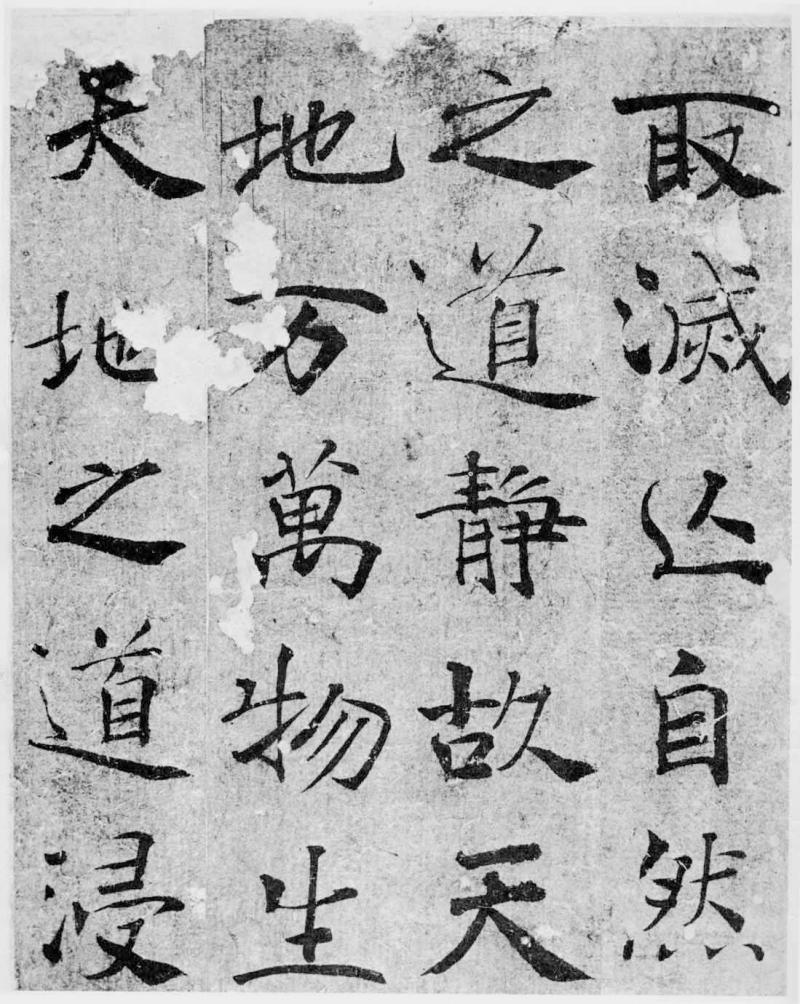 取滅亾自然
之道靜故天
地万萬物生
天地之道浸